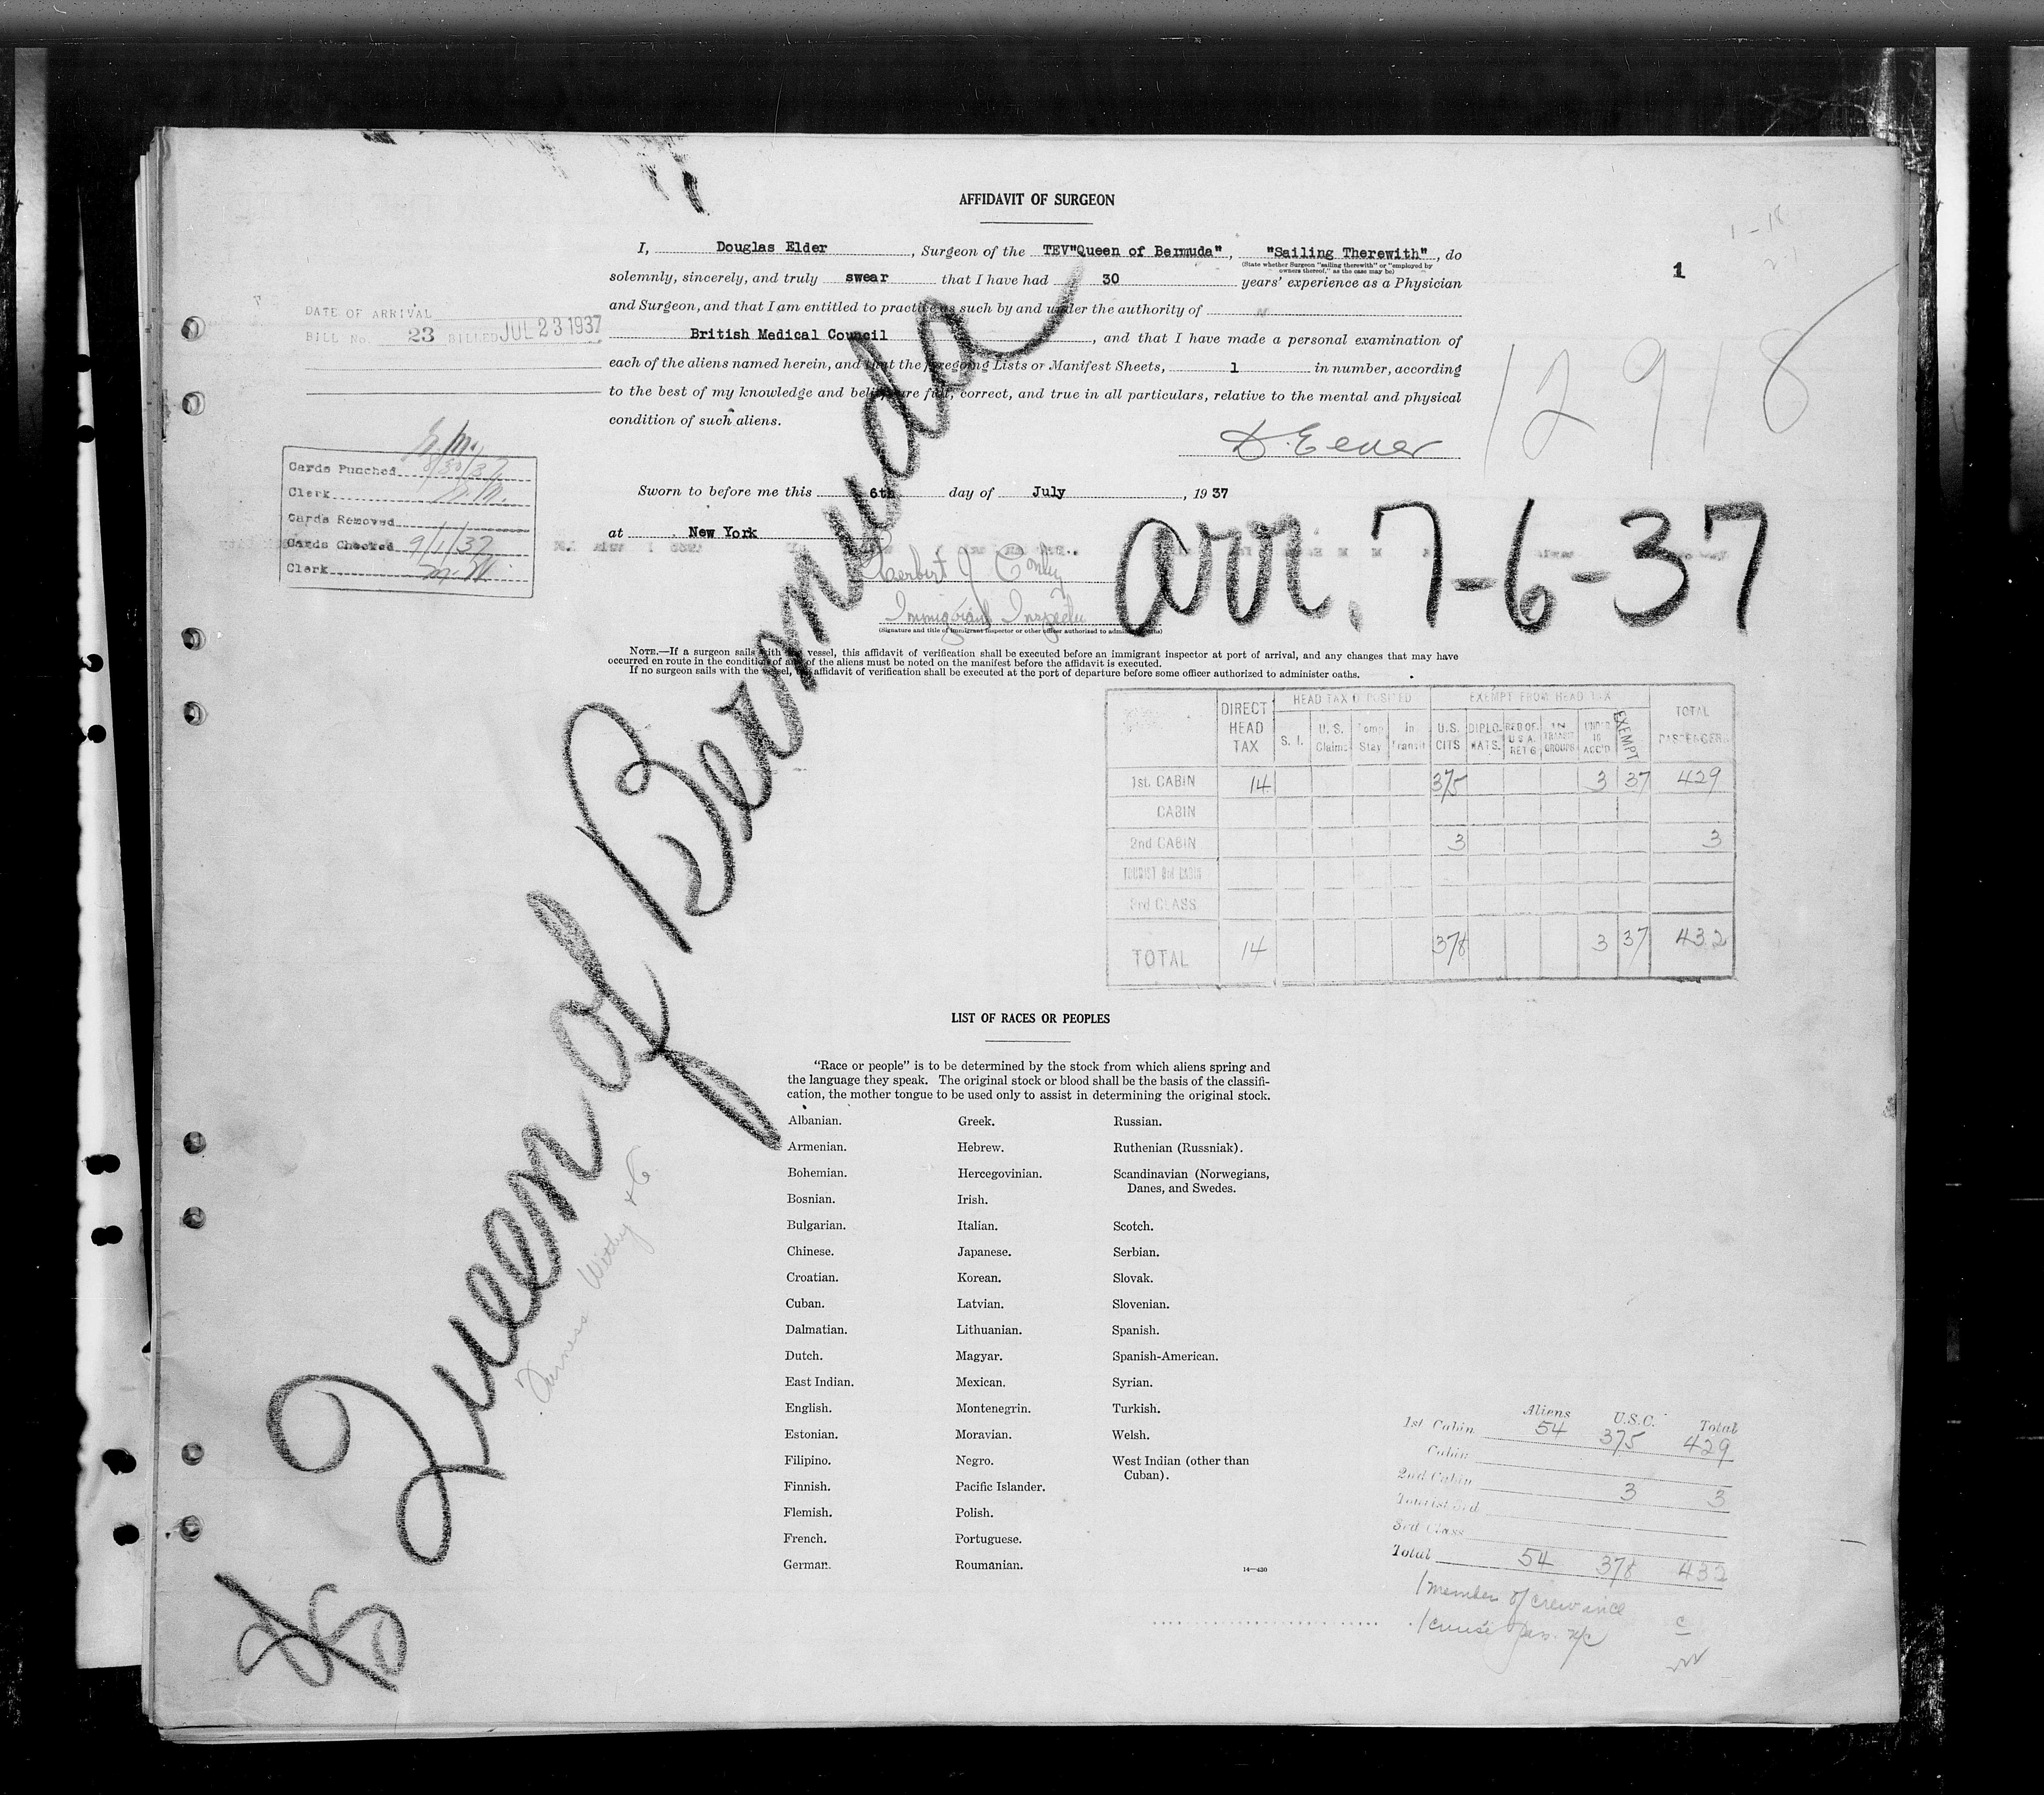 AFFIDAVIT OF SURGEON
I, Douglas Elder, Surgeon of the TEV"Queen of Bermuda", "Sailing Therewith", do
(State whether Surgeon "sailing therewith" or "employed by
owners thereof," as the case may be)
solemnly, sincerely, and truly swear that I have had 30 years' experience as a Physician
and Surgeon, and that I am entitled to practice as such by and under the authority of
British Medical Council, and that I have made a personal examination of
each of the aliens named herein, and that the foregoing Lists or Manifest Sheets, 1 in number, according
to the best of my knowledge and belief, are full, correct, and true in all particulars, relative to the mental and physical
condition of such aliens.
1
1-18
12918
DATE OF ARRIVAL
BILL No. 23 BILLED JUL 23 1937
Cards Punched 8/30/37
Clerk
Cards Removed
Cards Checked 9/1/37
Clerk
Sworn to before me this 6th day of July, 1937
at New York
arr. 7-6-37
Immigrant Inspector
(Signature and title of immigrant inspector or other officer authorized to administer oaths)
NOTE.—If a surgeon sails with the vessel, this affidavit of verification shall be executed before an immigrant inspector at port of arrival, and any changes that may have
occurred en route in the condition of any of the aliens must be noted on the manifest before the affidavit is executed.
If no surgeon sails with the vessel, the affidavit of verification shall be executed at the port of departure before some officer authorized to administer oaths.
Queen of Bermuda
Furness Withy & Co
DIRECT HEAD TAX HEAD TAX DEPOSITED EXEMPT FROM HEAD TAX TOTAL PASSENGERS
S. I. U. S. Claims Temp Stay In Transit U.S. CITS DIPLO-MATS. RES OF U S A. RET G IN TRANSIT GROUPS UNDER 16 ACC'D EXEMPT
1st. CABIN 14 375 3 37 429
CABIN
2nd CABIN 3 3
TOURIST 3rd CABIN
3rd CLASS
TOTAL 14 378 3 37 432
LIST OF RACES OR PEOPLES
"Race or people" is to be determined by the stock from which aliens spring and
the language they speak. The original stock or blood shall be the basis of the classifi-
cation, the mother tongue to be used only to assist in determining the original stock.
Albanian.
Armenian.
Bohemian.
Bosnian.
Bulgarian.
Chinese.
Croatian.
Cuban.
Dalmatian.
Dutch.
East Indian.
English.
Estonian.
Filipino.
Finnish.
Flemish.
French.
German.
Greek.
Hebrew.
Hercegovinian.
Irish.
Italian.
Japanese.
Korean.
Latvian.
Lithuanian.
Magyar.
Mexican.
Montenegrin.
Moravian.
Negro.
Pacific Islander.
Polish.
Portuguese.
Roumanian.
Russian.
Ruthenian (Russniak).
Scandinavian (Norwegians,
Danes, and Swedes.
Scotch.
Serbian.
Slovak.
Slovenian.
Spanish.
Spanish-American.
Syrian.
Turkish.
Welsh.
West Indian (other than
Cuban).
14—430
Aliens U.S.C. Total
1st Cabin 54 375 429
Cabin
2nd Cabin 3 3
Tourist 3rd
3rd Class
Total 54 378 432
1 member of crew incl
1 cruise pas.
c